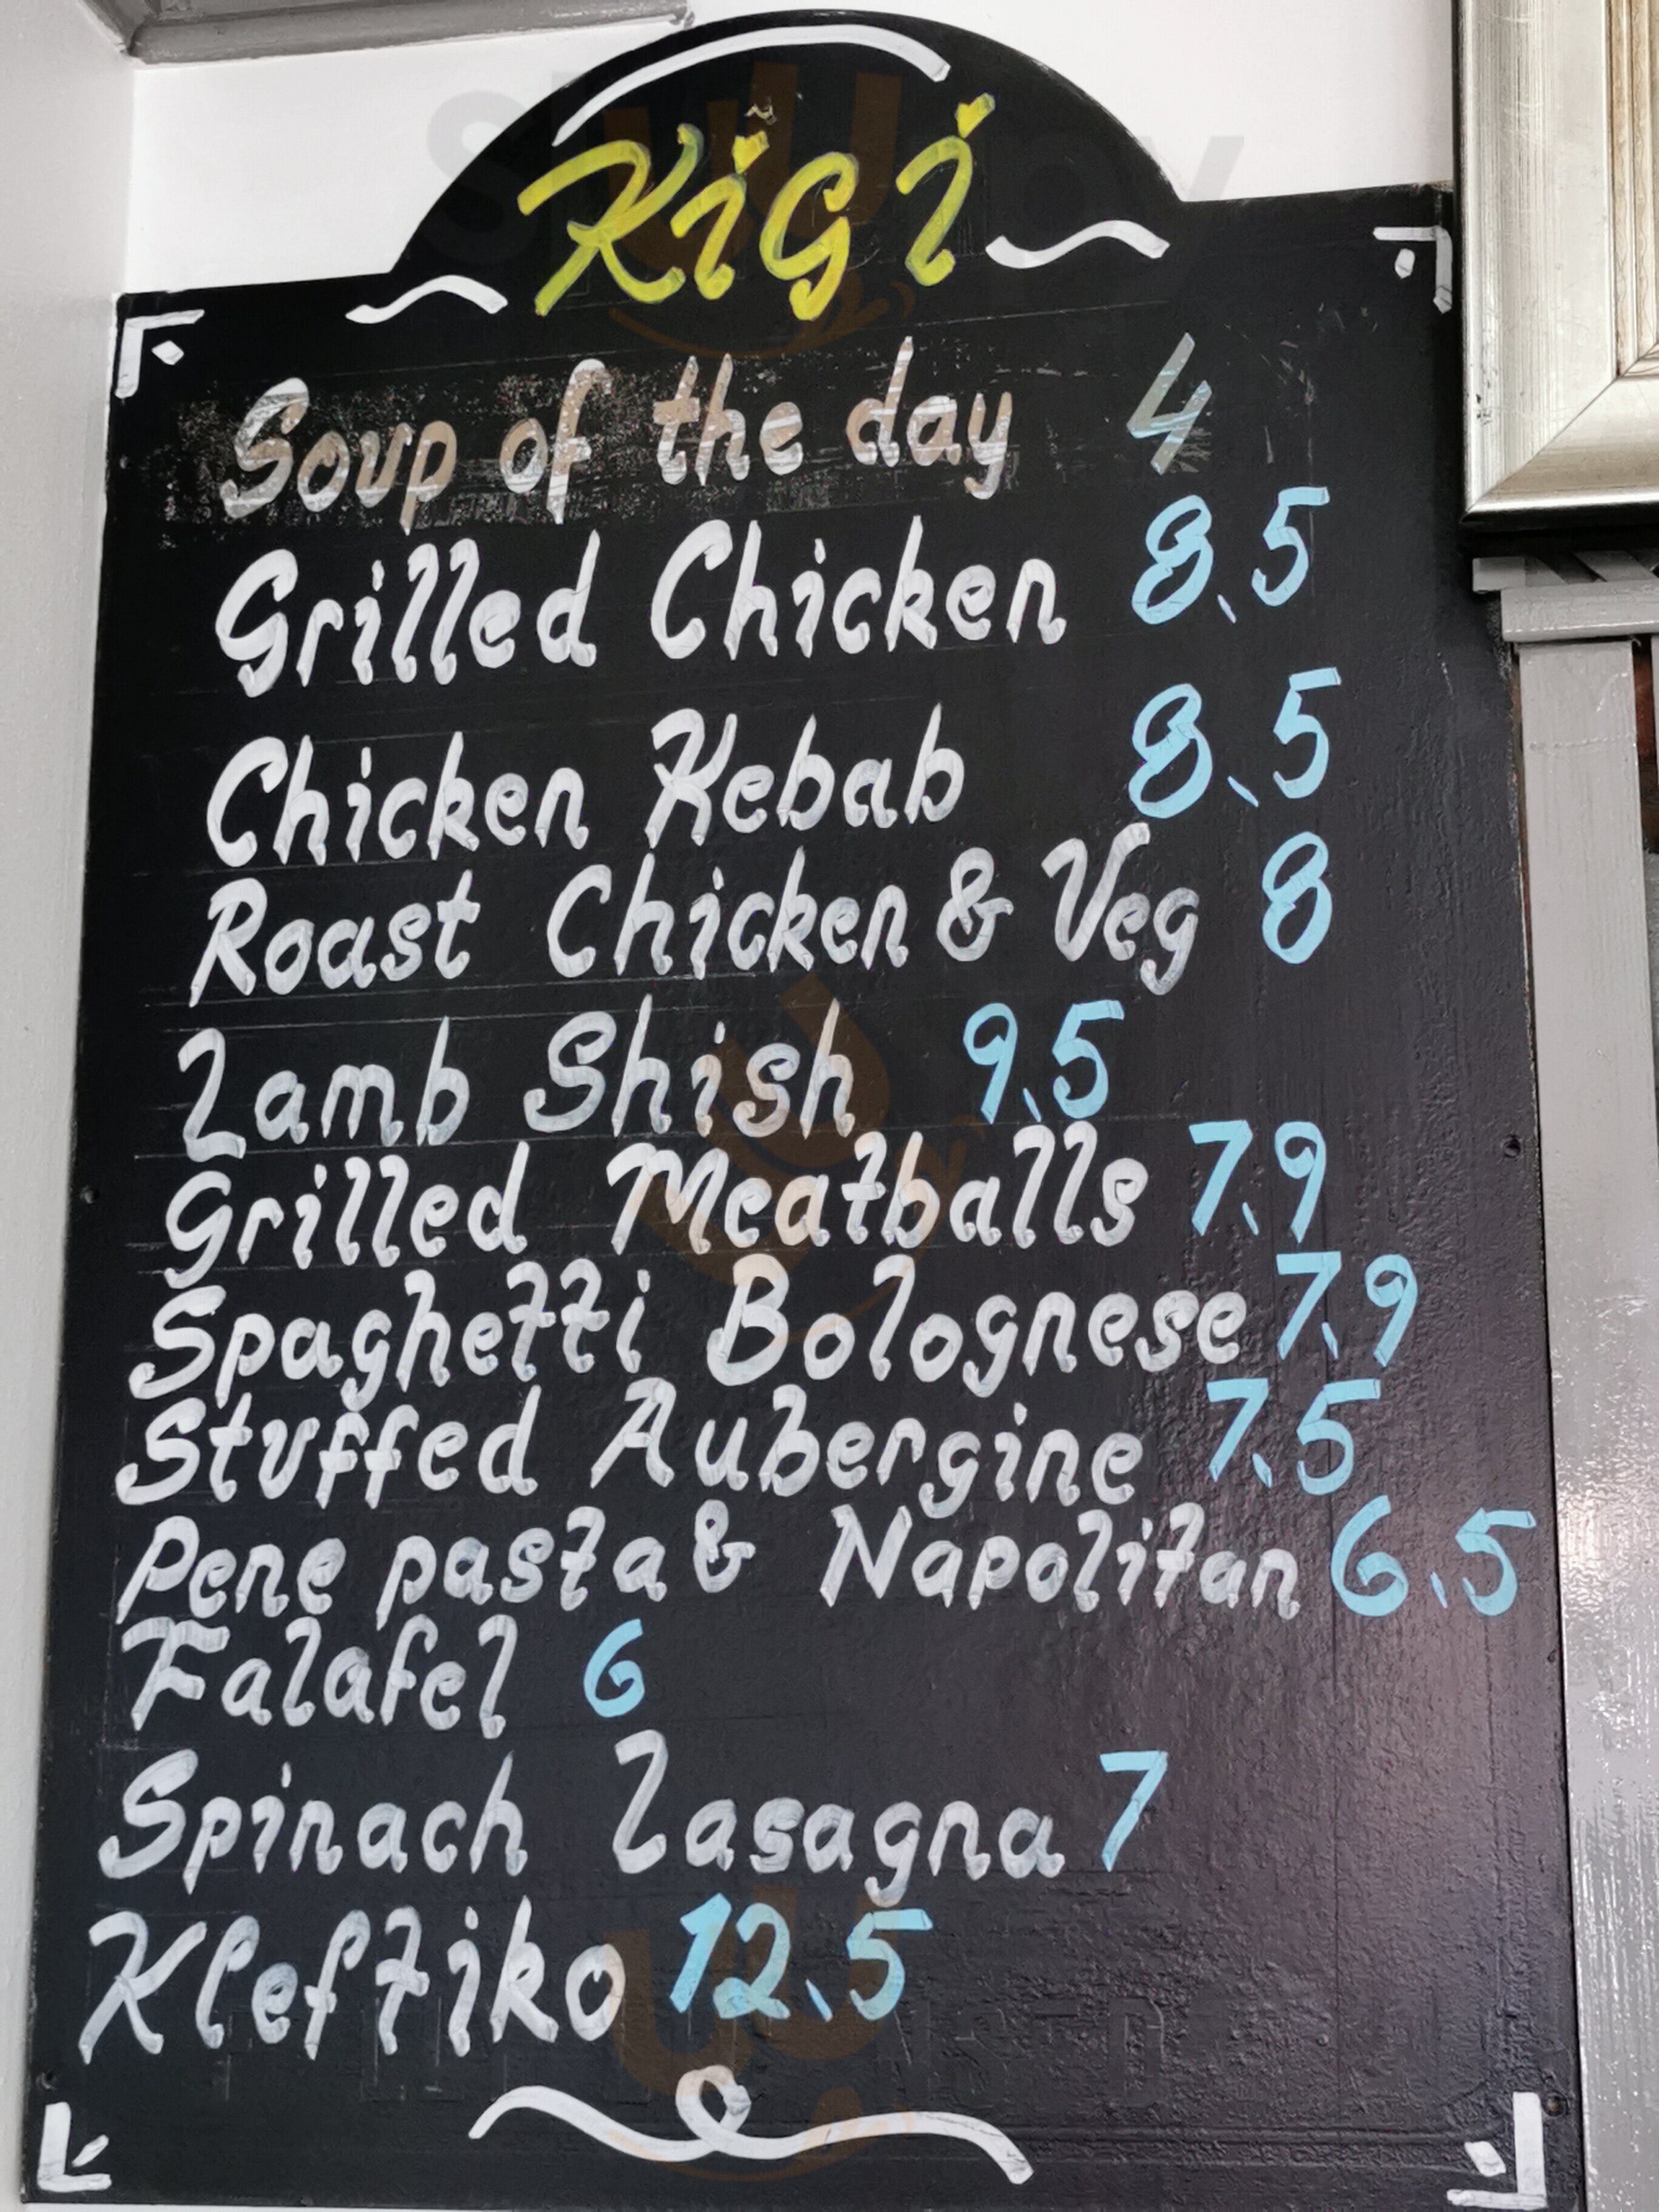 KiGi
Soup of the day 4
Grilled Chicken 8.5
Chicken Kebab 8.5
Roast Chicken & Veg 8
Lamb Shish 9.5
Grilled Meatballs 7.9
Spaghetti Bolognese 7.9
Stuffed Aubergine 7.5
Pene pasta & Napolitan 6.5
Falafel 6
Spinach Lasagna 7
Kleftiko 12.5